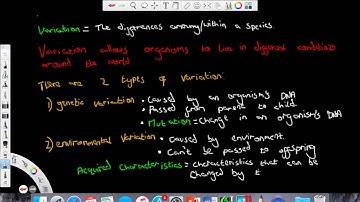 Variation = The differences among/within a species.
Variation allows organisms to live in different conditions
around the world
There are 2 types of variation:
1) genetic variation • Caused by an organism's DNA
• Passed from parent to child
• Mutation = Change in an organism's DNA
2) environmental variation • caused by environment.
• Can't be passed to offspring
Acquired Characteristics = Characteristics that can be
changed by t